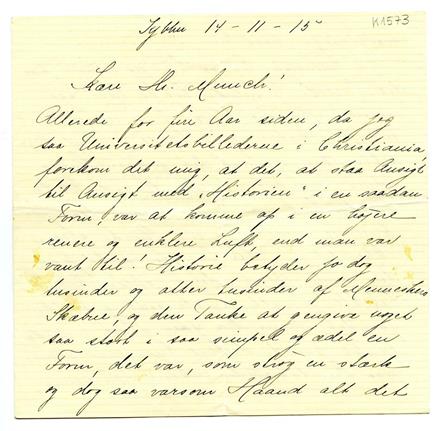 K1573
Lybker 14-11-15
Kære Hr. Munch!
Allerede for fire Aar siden, da jeg
saa Universitetsbillederne i Christiania,
forekom det mig, at det, at staa Ansigt
til Ansigt med „Historien" i en saadan
Form, var at komme op i en højere
renere og enklere Luft, end man var
vant til! Historie betyder jo dog
tusinder og atter tusinder af Menneskers
Skæbne, og den Tanke at gengive noget
saa stort i saa simpel og ædel en
Form, det var, som strøg en stærk
og dog saa varsom Haand alt det